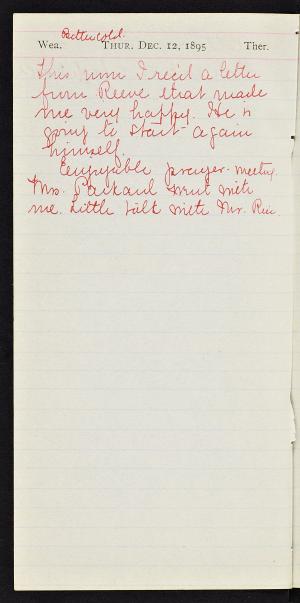 Bitter cold.
Wea. THUR. DEC. 12, 1895 Ther.
This noon I rec'd a letter
from Reeve that made
me very happy. He is
going to start again
himself.
Enjoyable prayer-meeting.
Mrs. went with
me. Little talk with Mr.